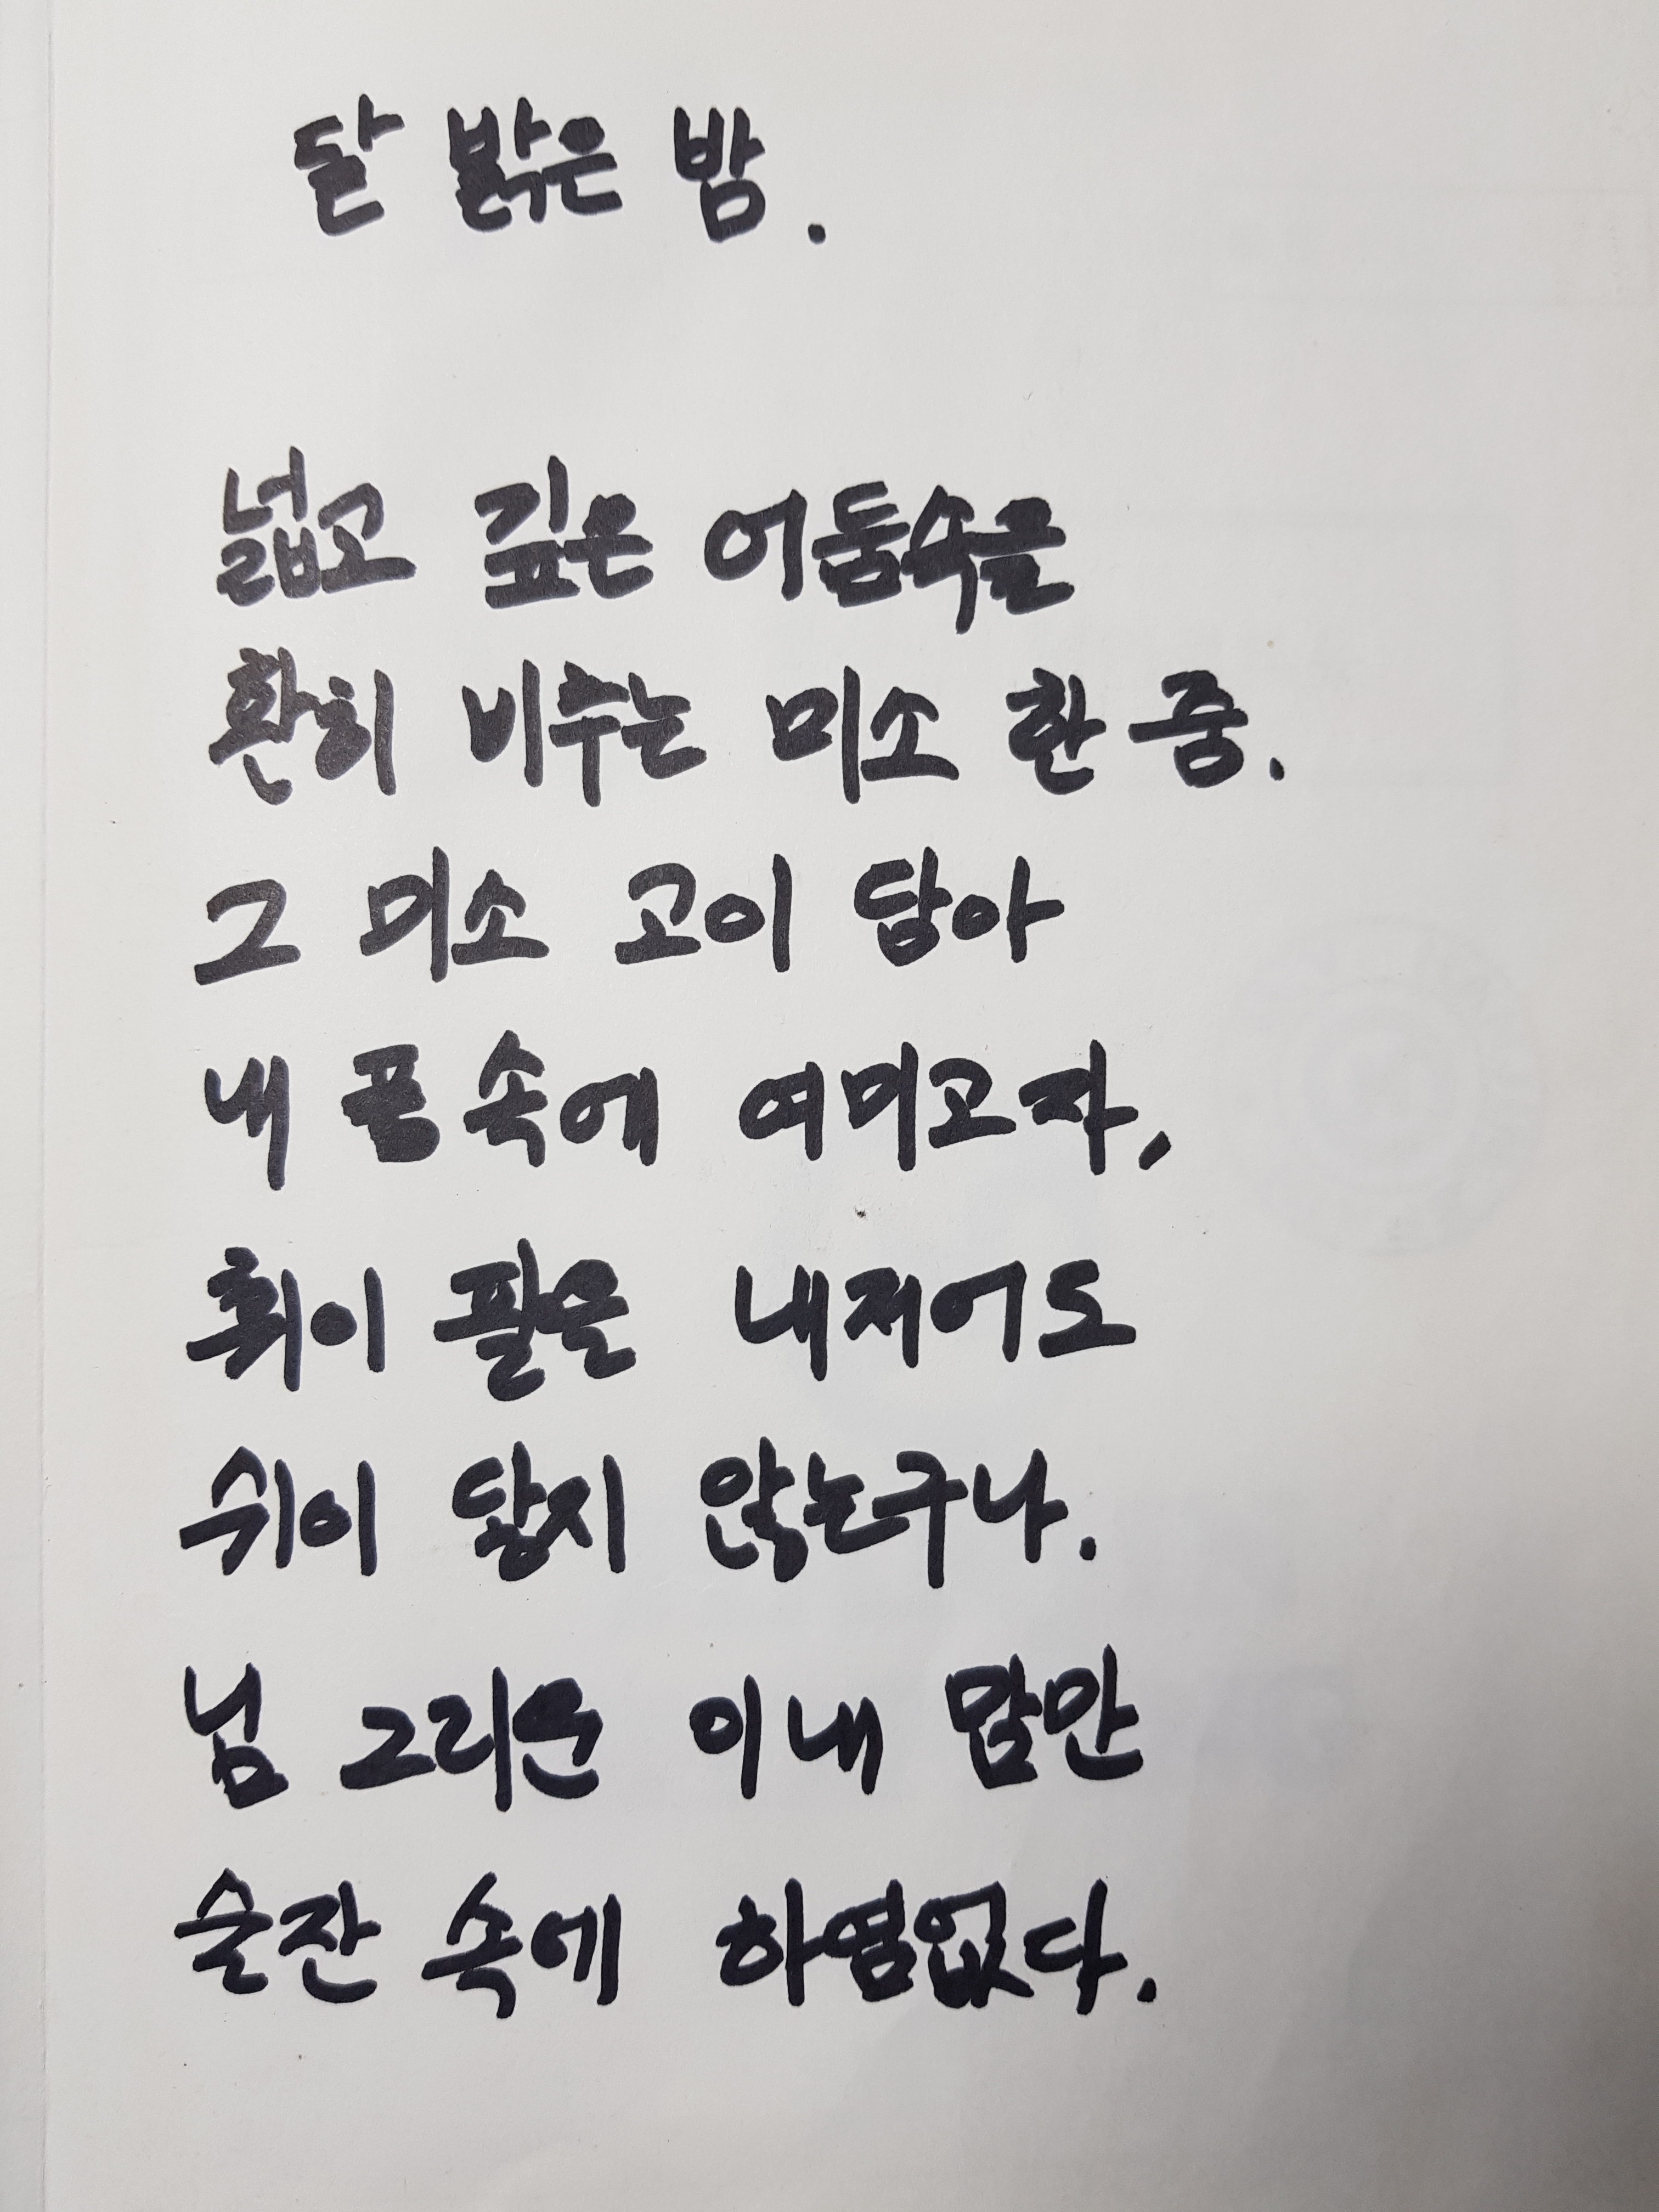 달 밝은 밤.
넓고 깊은 어둠속을
환히 비추는 미소 한 줌.
그 미소 고이 담아
내 품 속에 여미고자,
휘이 팔을 내저어도
쉬이 닿지 않는구나.
님 그리운 이내 맘만
술잔 속에 하염없다.